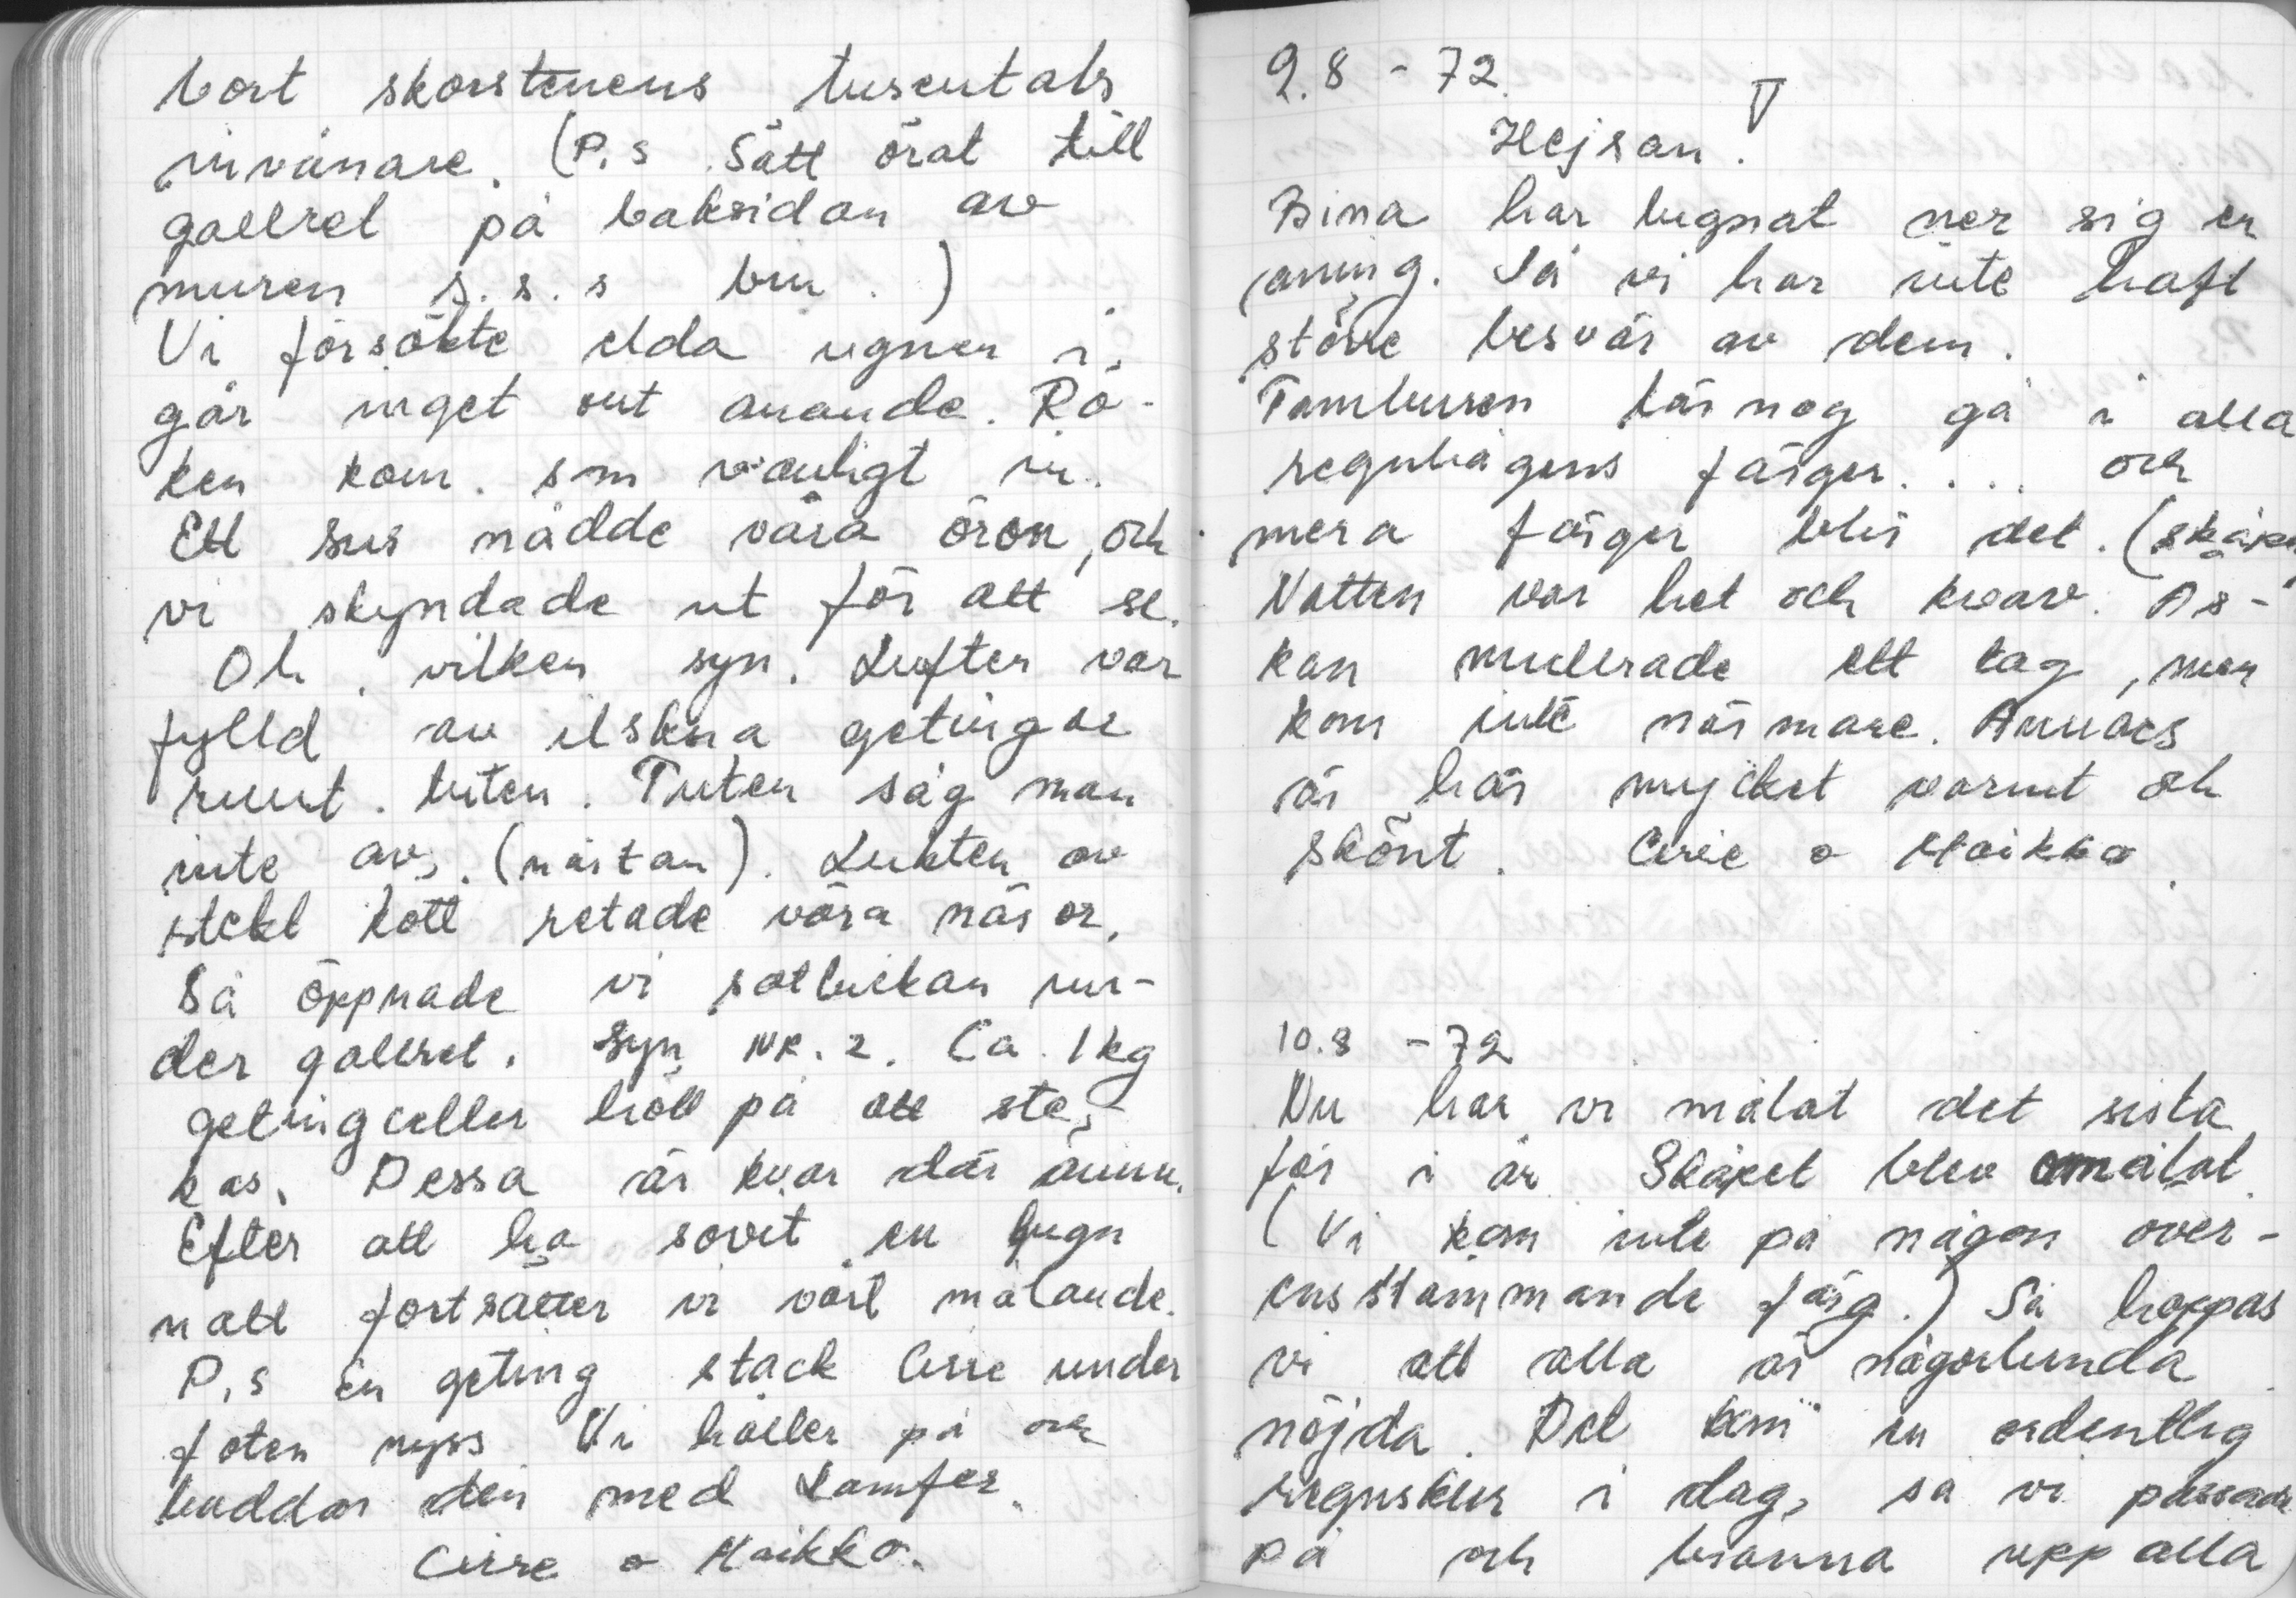 bort skorstenens tusentals
invånare. (P.s Sätt örat till
gallret på baksidan av
muren s.s.s bin.)
Vi försökte elda ugnen i
går inget ont anande. Rö-
ken kom som vanligt in.
Ett sus nådde våra öron, och
vi skyndade ut för att se.
Oh, vilken syn. Luften var
fylld av ilskna getingar
runt tuten. Tuten såg man
inte av. (nästan). Lukten av
stekt kött retade våra näsor.
Så öppnade vi sotluckan un-
der gallret. Syn nr. 2. Ca 1 kg
getingceller höll på att ste-
kas. Dessa är kvar där ännu.
Efter att ha sovit en lugn
natt fortsätter vi vårt målande.
P.s En geting stack Cirre under
foten nyss Vi håller på och
baddar den med Kamfer.
Cirre o Maikka.
9.8 - 72.
Hejsan!
Bina har lugnat ner sig en
aning. Så vi har inte haft
större besvär av dem.
Tamburen lär nog gå i alla
regnbågens färger.... och
mera färger blir det. (skåpen
Natten var het och kvav. Ås-
kan mullrade ett tag, men
kom inte närmare. Annars
är här mycket varmt och
skönt. Cirre o Maikka.
10.8 - 72
Nu har vi målat det sista
för i år. Skåpet blev omålat.
(Vi kom inte på någon över-
ensstämmande färg.) Så hoppas
vi att alla är någorlunda
nöjda. Det kom en ordentlig
regnskur i dag, så vi passade
på och bränna upp alla